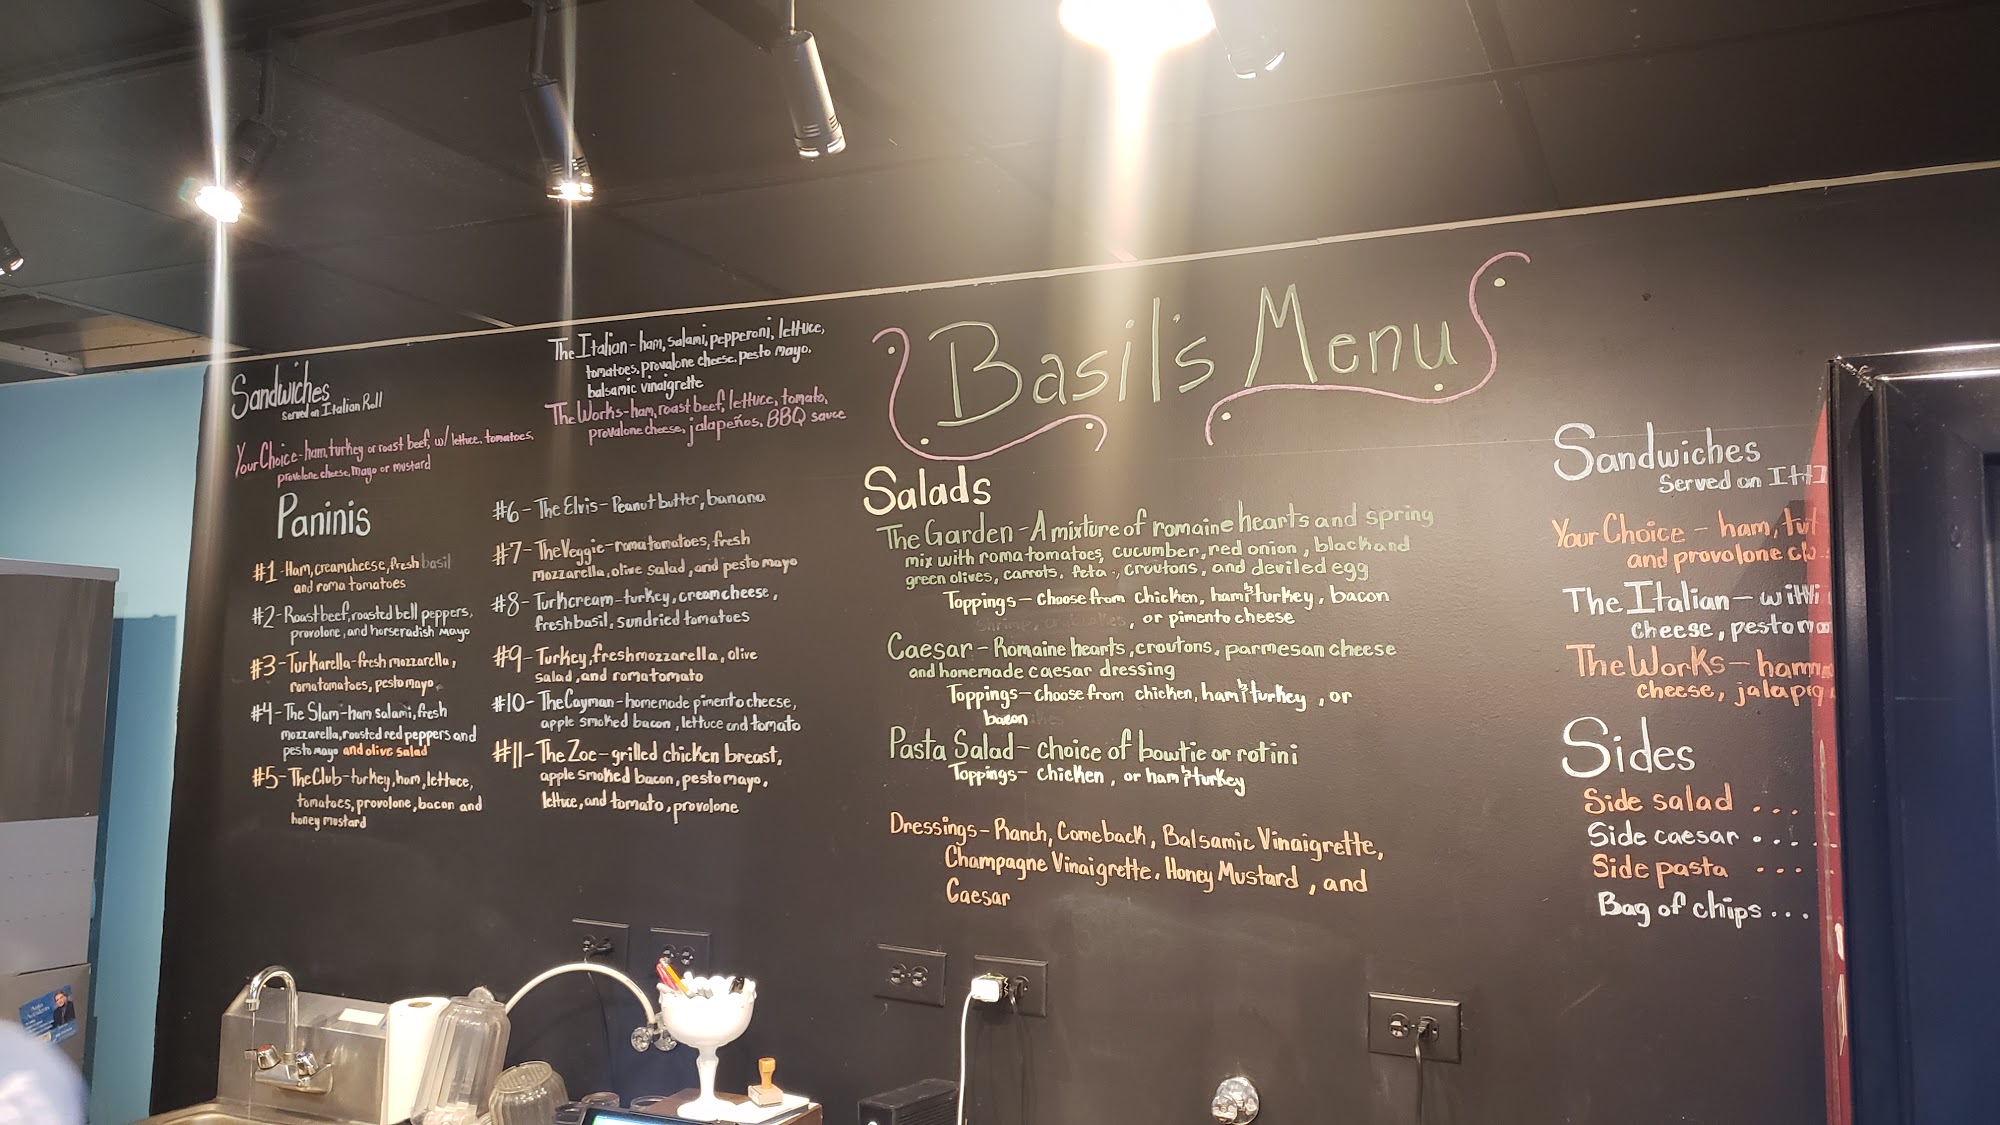 Sandwiches
Served on Italian Roll
Your Choice - ham, turkey or roast beef, w/ lettuce, tomatoes,
provolone cheese, mayo or mustard
The Italian - ham, salami, pepperoni, lettuce,
tomatoes, provolone cheese, pesto mayo,
balsamic vinaigrette
The Works - ham, roast beef, lettuce, tomato,
provolone cheese, jalapeños, BBQ sauce
Paninis
#1 - Ham, creamcheese, fresh basil
and roma tomatoes
#2 - Roast beef, roasted bell peppers,
provolone, and horseradish mayo
#3 - Turkarella - fresh mozzarella,
roma tomatoes, pesto mayo
#4 - The Slam - ham salami, fresh
mozzarella, roasted red peppers and
pesto mayo and olive salad
#5 - The Club - turkey, ham, lettuce,
tomatoes, provolone, bacon and
honey mustard
#6 - The Elvis - Peanut butter, banana
#7 - The Veggie - roma tomatoes, fresh
mozzarella, olive salad, and pesto mayo
#8 - Turkcream - turkey, creamcheese,
fresh basil, sundried tomatoes
#9 - Turkey, fresh mozzarella, olive
salad, and roma tomato
#10 - The Cayman - homemade pimento cheese,
apple smoked bacon, lettuce and tomato
#11 - The Zoe - grilled chicken breast,
apple smoked bacon, pesto mayo,
lettuce, and tomato, provolone
Basil's Menu
Salads
The Garden - A mixture of romaine hearts and spring
mix with roma tomatoes, cucumber, red onion, black and
green olives, carrots, feta, croutons, and deviled egg
Toppings - choose from chicken, ham & turkey, bacon
, or pimento cheese
Caesar - Romaine hearts, croutons, parmesan cheese
and homemade caesar dressing
Toppings - choose from chicken, ham & turkey, or
bacon
Pasta Salad - choice of bowtie or rotini
Toppings - chicken, or ham & turkey
Dressings - Ranch, Comeback, Balsamic Vinaigrette,
Champagne Vinaigrette, Honey Mustard, and
Caesar
Sandwiches
Served on
Your Choice - ham,
and provolone
The Italian -
cheese, pesto
The Works -
cheese,
Sides
Side salad ...
Side caesar ....
Side pasta ...
Bag of chips ...